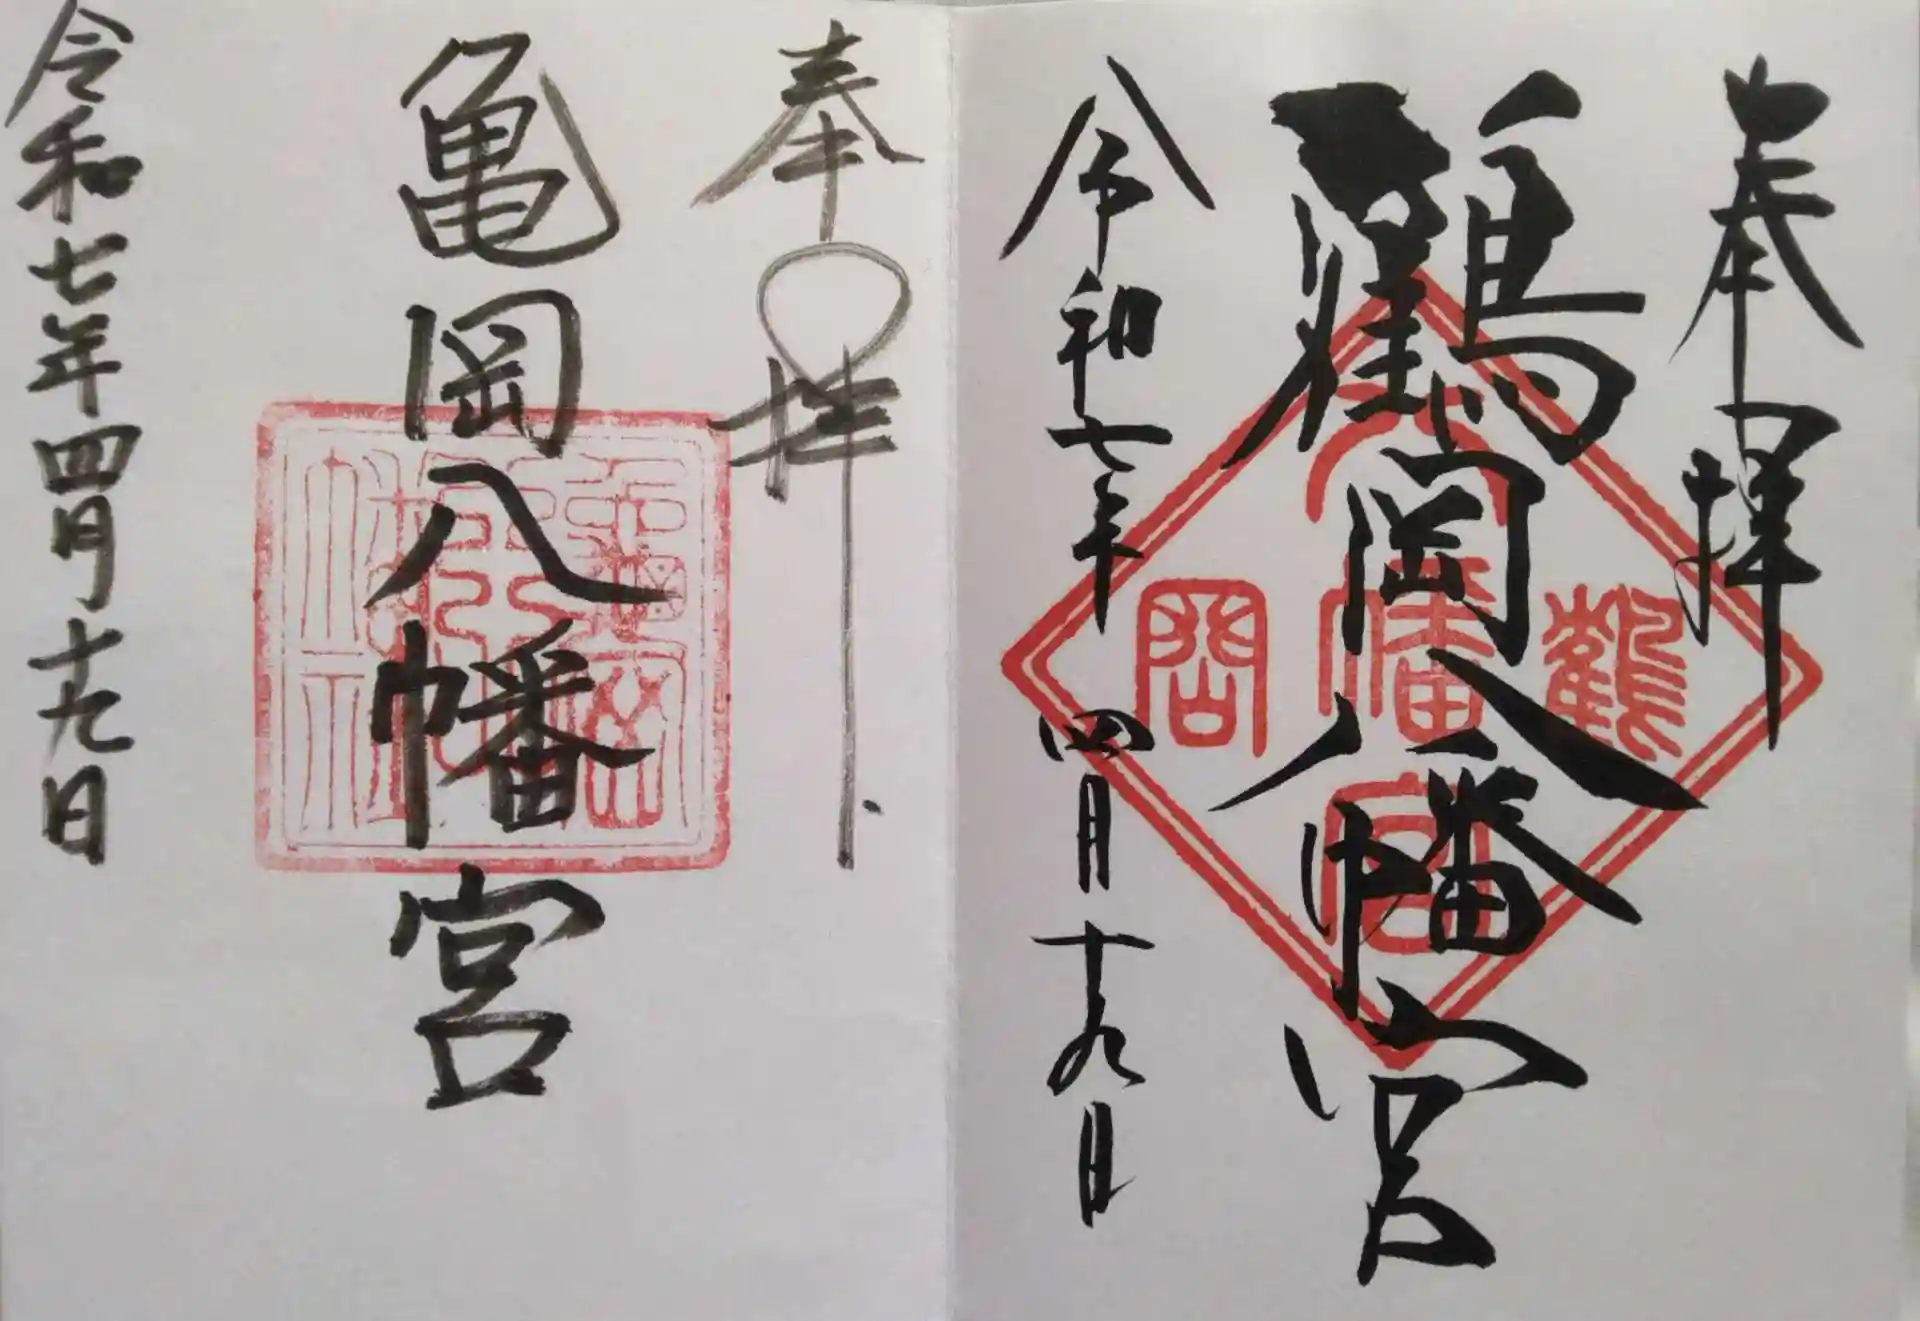 奉拝
鶴岡八幡宮
鶴
岡
八
幡
宮
令和七年
四月十九日
奉拝
亀岡八幡宮
令和七年四月十九日